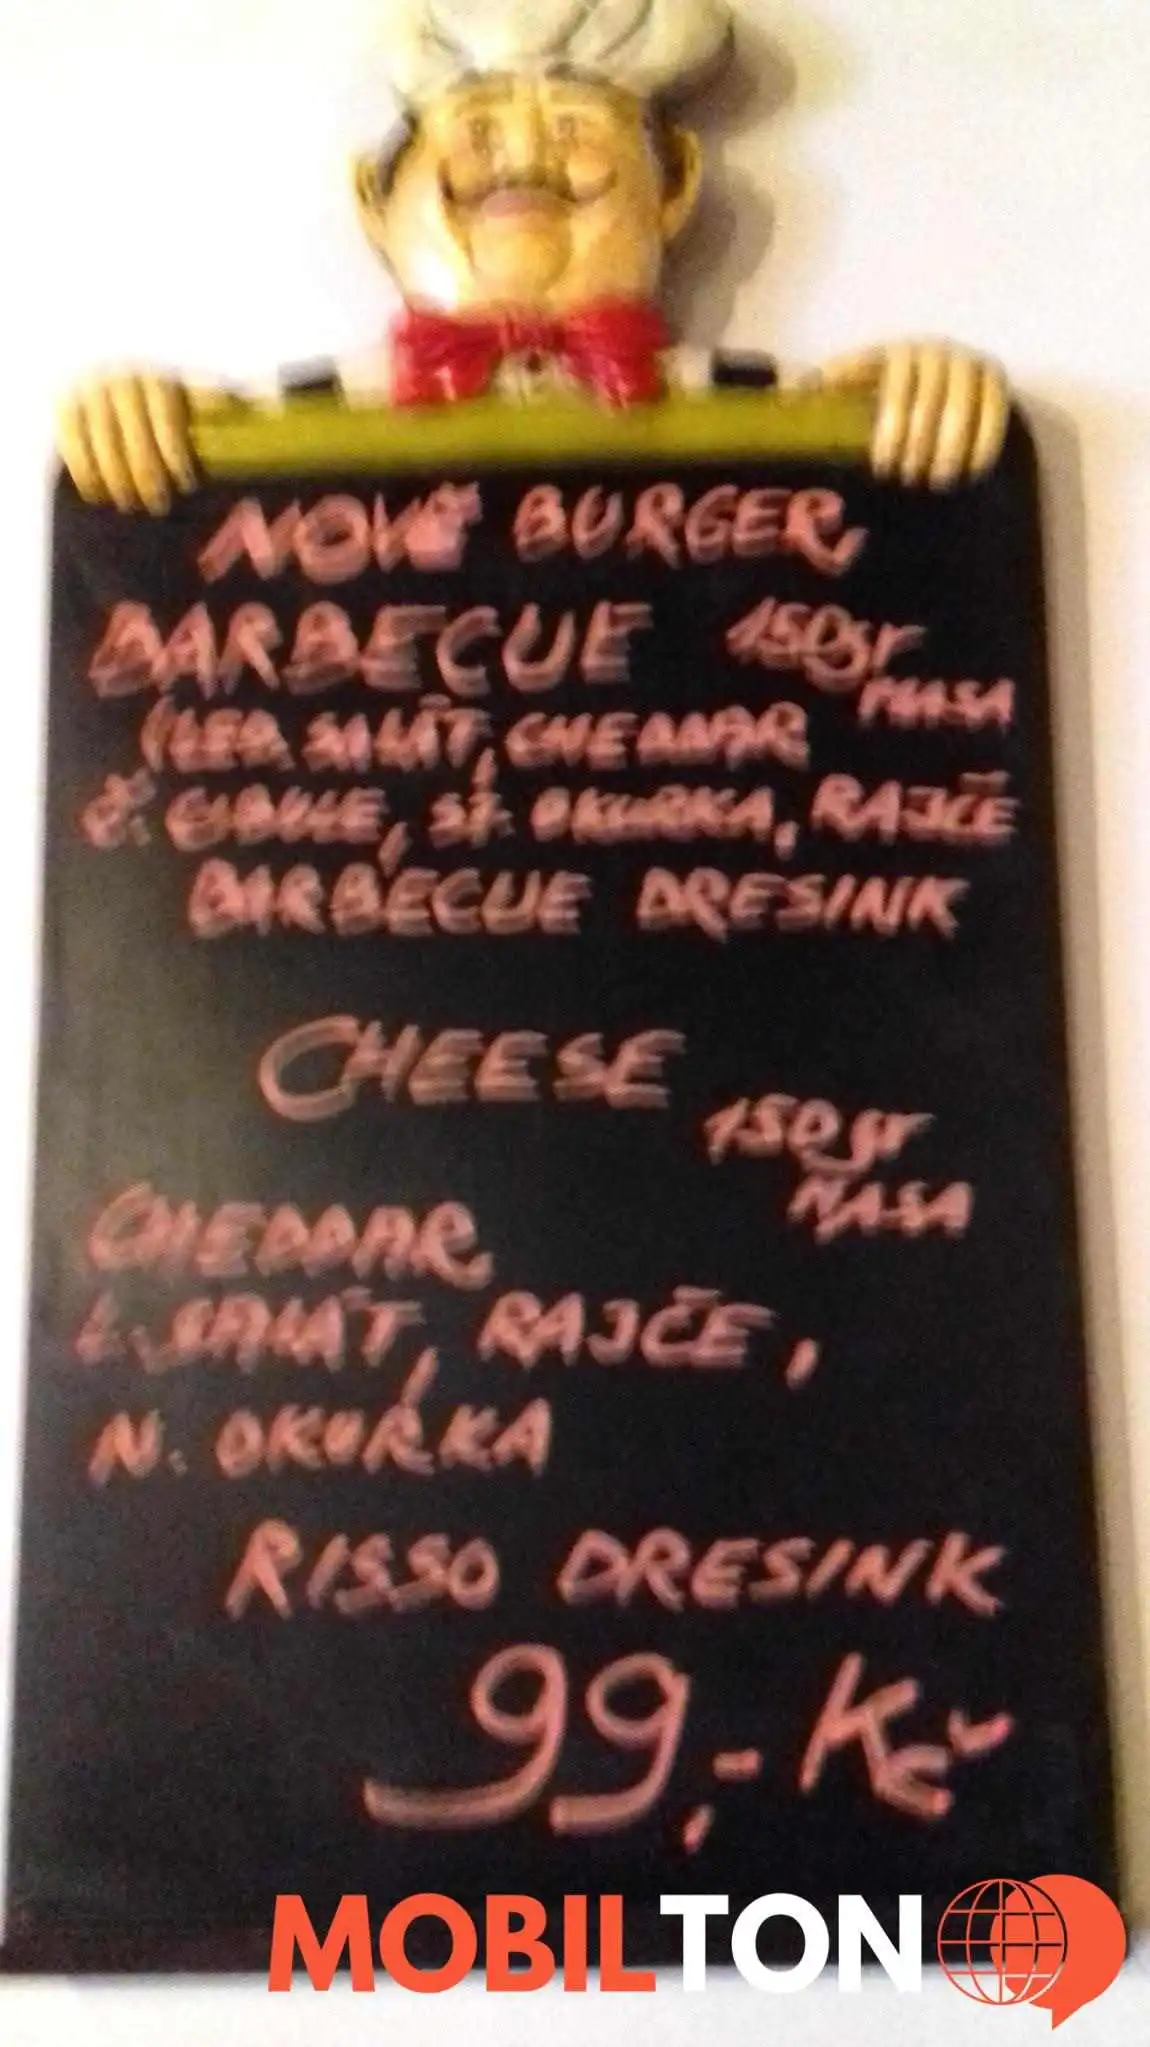 NOVÉ BURGER,
BARBECUE 150gr
MASA
(LED. SALÁT, CHEDDAR
Č. CIBULE, ST. OKURKA, RAJČE
BARBECUE DRESINK
CHEESE
150gr
MASA
CHEDDAR
L. SALÁT, RAJČE,
N. OKURKA
RISSO DRESINK
99,- Kč
MOBILTON